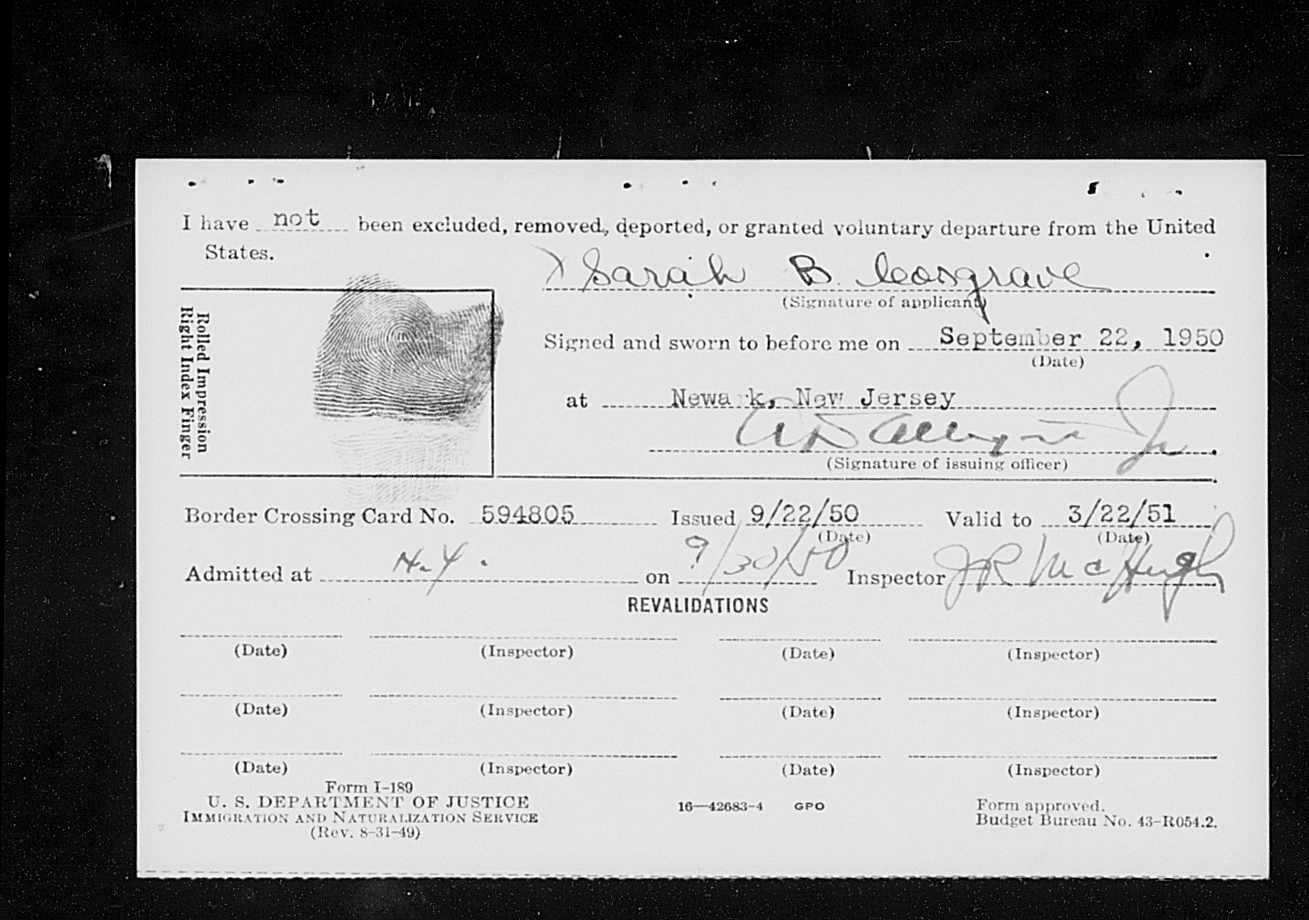 I have not been excluded, removed, deported, or granted voluntary departure from the United
States.
X Sarah B. Cosgrave
(Signature of applicant)
Rolled Impression
Right Index Finger
Signed and sworn to before me on September 22, 1950
(Date)
at Newark, New Jersey
Jr.
(Signature of issuing officer)
Border Crossing Card No. 594805 Issued 9/22/50 Valid to 3/22/51
(Date) (Date)
Admitted at N.Y. on 9/30/50 Inspector JR McHugh
REVALIDATIONS
(Date) (Inspector) (Date) (Inspector)
(Date) (Inspector) (Date) (Inspector)
(Date) (Inspector) (Date) (Inspector)
Form I-189
U. S. DEPARTMENT OF JUSTICE
IMMIGRATION AND NATURALIZATION SERVICE
(Rev. 8-31-49)
16—42683-4 GPO
Form approved.
Budget Bureau No. 43-R054.2.